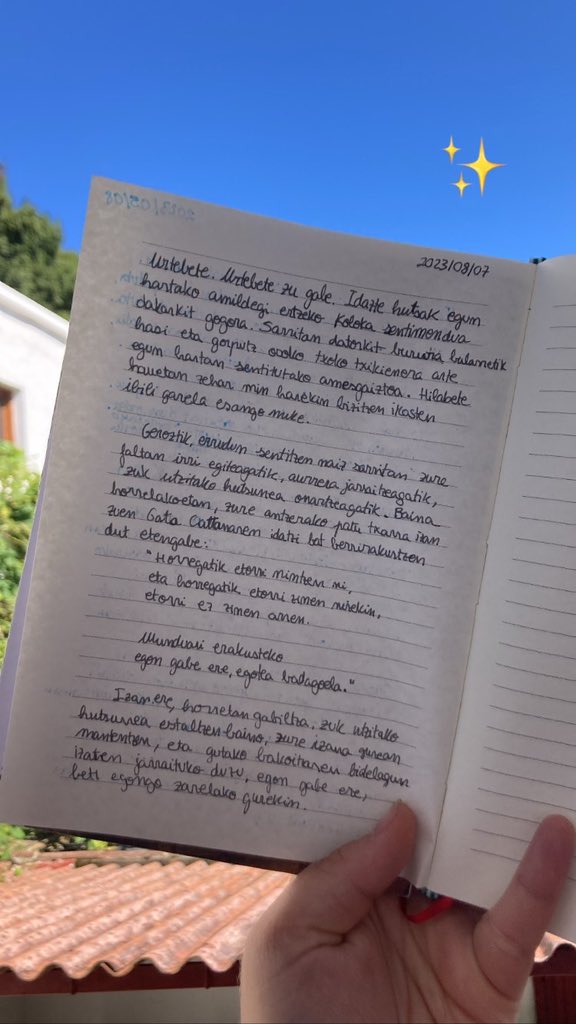 2023/08/07
Urtebete. Urtebete zu gabe. Idazte hutsak egun
hartako amildegi ertzeko koloka sentimendua
dakarkit gogora. Sarritan datorkit burura bularretik
hasi eta gorputz osoko txoko txikienera arte
egun hartan sentitutako amesgaiztoa. Hilabete
hauetan zehar min harekin bizitzen ikasten
ibili garela esango nuke.
Geroztik, errudun sentitzen naiz sarritan zure
faltan irri egiteagatik, aurrera jarraitzeagatik,
zuk utzitako hutsunea onartzeagatik. Baina
horrelakoetan, zure antzerako patu txarra izan
zuen Gata Cattanaren idatzi bat berrirakurtzen
dut etengabe:
"Horregatik etorri nintzen ni,
eta horregatik etorri zinen nirekin,
etorri ez zinen arren.
Munduari erakusteko
egon gabe ere, egotea badagoela."
Izan ere, horretan gabiltza. Zuk utzitako
hutsunea estaltzen baino, zure izana gurean
mantentzen, eta gutako bakoitzaren bidelagun
izaten jarraituko duzu, egon gabe ere,
beti egongo zarelako gurekin.